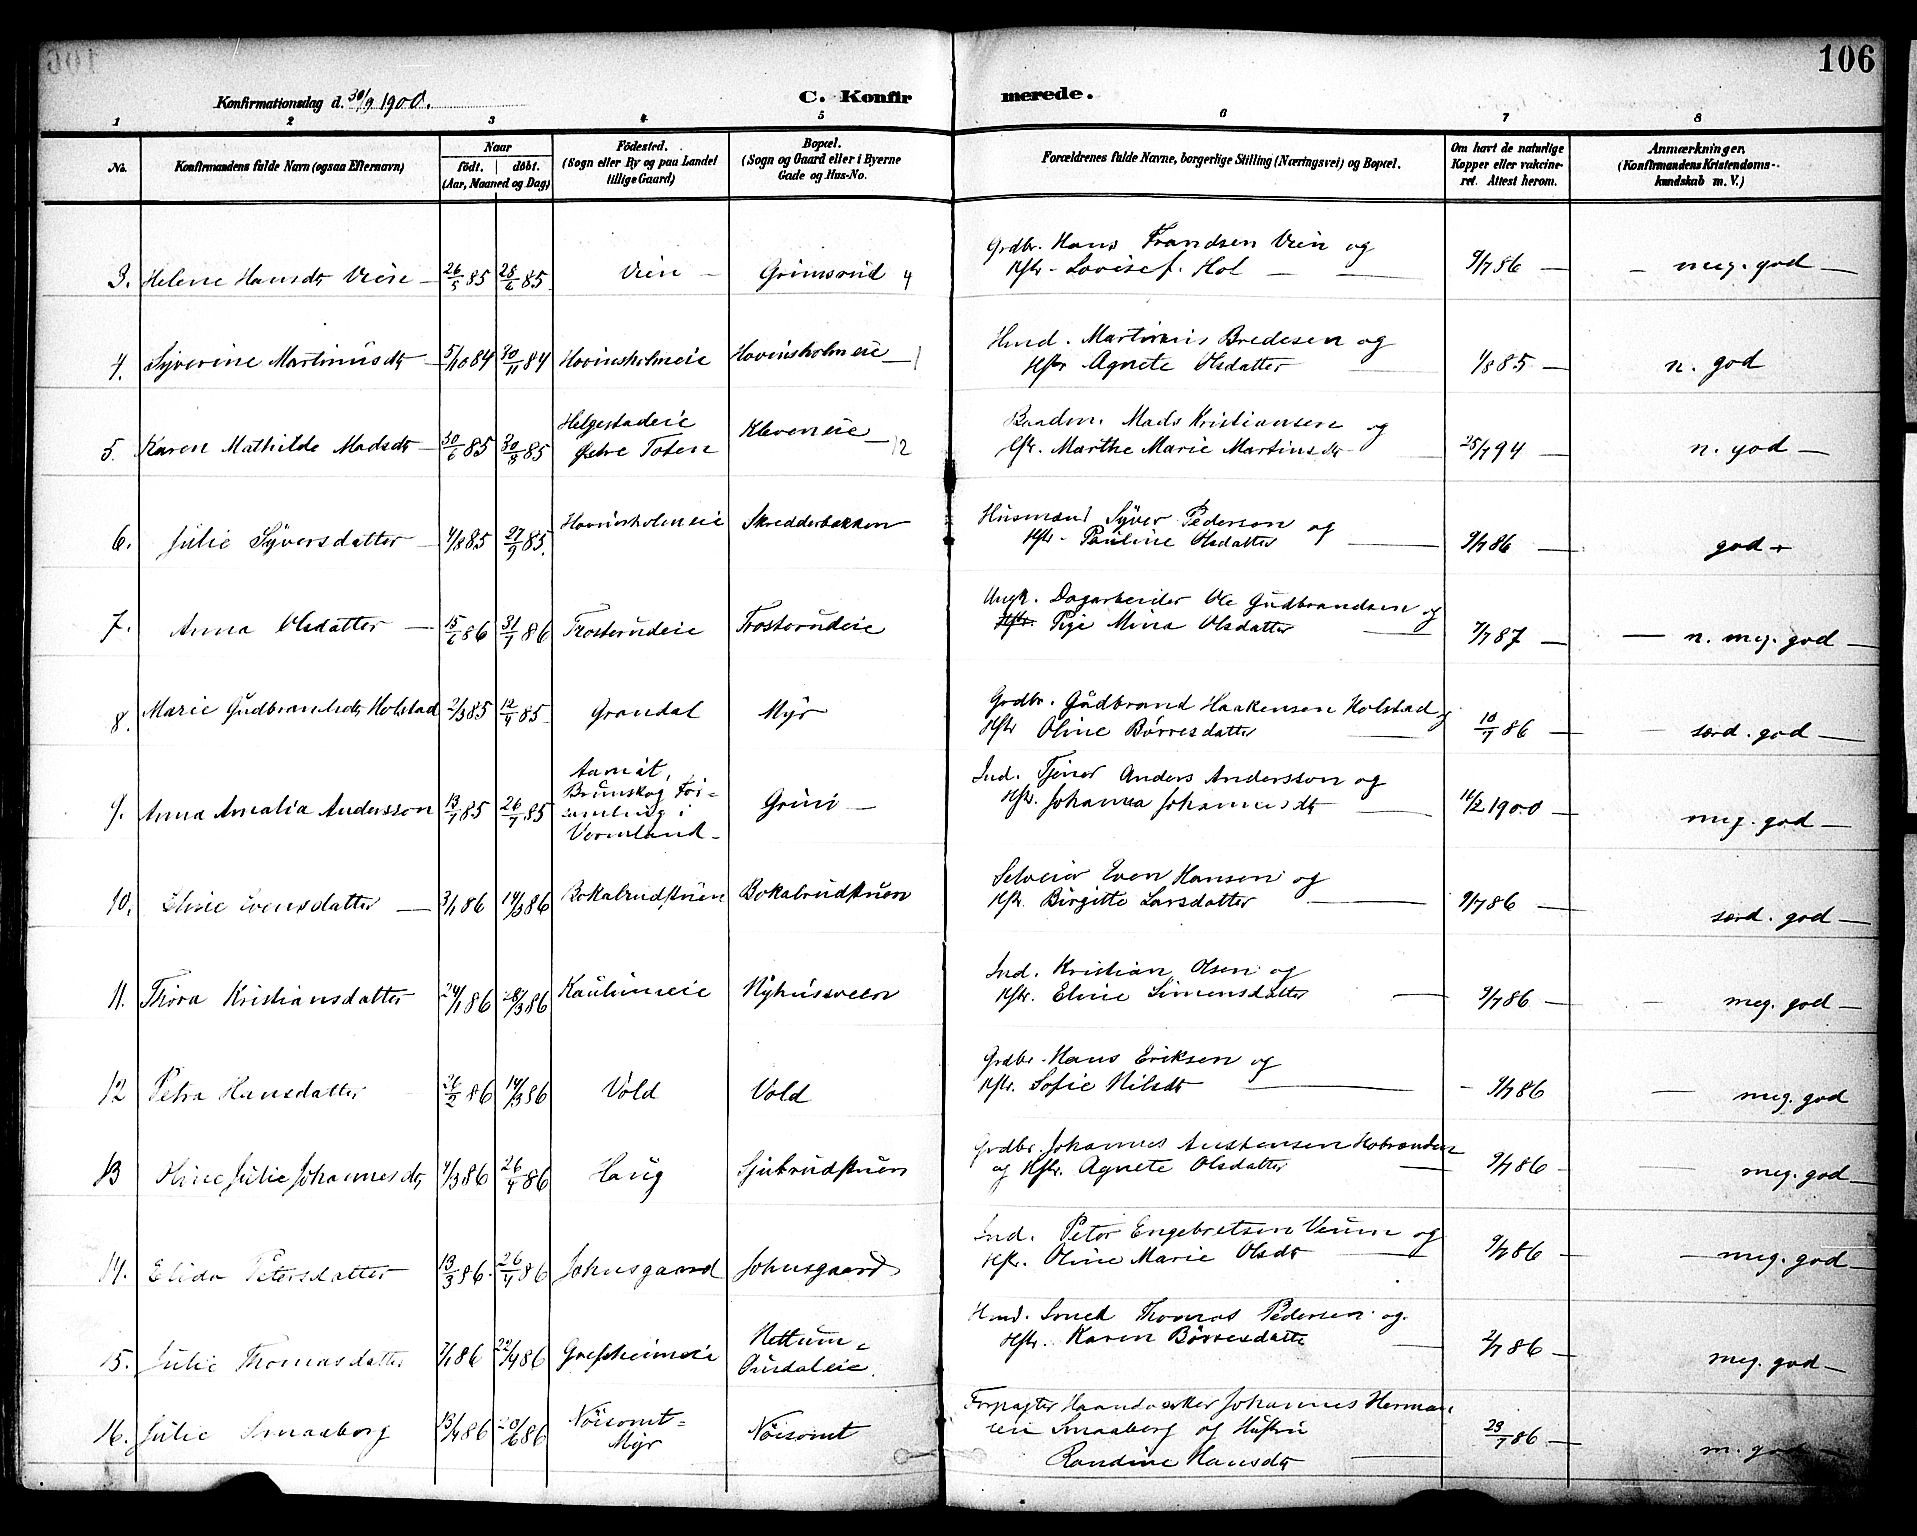 106
Konfirmationsdag d. 30/9 1900.
C. Konfirmerede.
1 2 3 4 5 6 7 8
No.
Konfirmandens fulde Navn (ogsaa Efternavn)
Naar
födt. | döbt.
(Aar, Maaned og Dag)
Födested.
(Sogn eller By og paa Landet
tillige Gaard)
Bopæl.
(Sogn og Gaard eller i Byerne
Gade og Hus-No.
Forældrenes fulde Navne, borgerlige Stilling (Næringsvei) og Bopæl.
Om havt de naturlige
Kopper eller vakcine-
ret. Attest herom.
Anmærkninger.
(Konfirmandens Kristendoms-
kundskab m. V.)
3. Helene Hansdt Vien 26/5 85 28/6 85 Vien Grimsrud 4
Grdbr. Hans Frandsen Vien og
Hstr. Lovise f. Hol 9/7 86 meg. god
4. Syverine Martinusdt 5/10 84 30/11 84 Hovinsholmeie Hovinsholmeie 1
Hmd. Martinus Bredesen og
Hstr Agnete Olsdatter 1/8 85 n. god
5. Karen Mathilde Madsdt 30/6 85 30/8 85 Helgestadeie
Østre Toten Kleveneie 12
Baadm. Mads Kristiansen og
Hstr. Marthe Marie Martinsdt 25/7 94 n. god
6. Julie Syversdatter 4/8 85 27/9 85 Hovinsholmeie Skredderbakken
Husmand Syver Pederson og
Hstr. Pauline Olsdatter 9/7 86 god
7. Anna Olsdatter 15/6 86 31/7 86 Trosterudeie Trosterudeie
Ungk. Dagarbeider Ole Gudbrandsen og
Hstr. Pige Mina Olsdatter 7/7 87 n. meg. god
8. Marie Gudbrandsdt Holstad 2/3 85 12/4 85 Grandal Myr
Grdbr. Gudbrand Haakensen Holstad og
Hstr Oline Børresdatter 10/7 86 særd. god
9. Anna Amalia Andersson 13/7 85 26/7 85 Aamåt,
Brunskog För-
samling i
Vermland Gruni
Ind. Tjener Anders Andersson og
Hstr. Johanna Johannesdt 14/2 1900 meg. god
10. Eline Evensdatter 3/1 86 14/3 86 Bokalrudstuen Bokalrudstuen
Selveier Even Hansen og
Hstr. Birgitte Larsdatter 9/7 86 særd. god
11. Thora Kristiansdatter 24/1 86 28/3 86 Kaulumeie Nyhusveen
Ind. Kristian Olsen og
Hstr. Eline Simensdatter 9/7 86 meg. god
12 Petra Hansdatter 26/2 86 14/3 86 Vold Vold
Grdbr. Hans Eriksen og
Hstr. Sofie Nilsdt 9/7 86 meg. god
13 Oline Julie Johannesdt 4/3 86 26/4 86 Haug Sjulrudstuen
Grdbr Johannes Austensen
og Hstr. Agnete Olsdatter 9/7 86 meg. god
14. Elida Petersdatter 13/3 86 26/4 86 Johnsgaard Johnsgaard
Ind. Peter Engebretsen Veum og
Hstr. Oline Marie Olsdt 9/7 86 meg. god
15. Julie Thomasdatter 7/1 86 22/4 86 Grefsheimeie Nettum-
Hmd. Smed Thomas Pedersen og
Hstr. Karen Børresdatter 2/7 86 meg. god
16. Julie Smaaborg 13/4 86 20/6 86 Nöisomt-
Myr Nöisomt
Forpagter Haandverker Johannes Herman-
sen Smaaborg og Hustru
Randine Hansdt 23/7 86 m. god